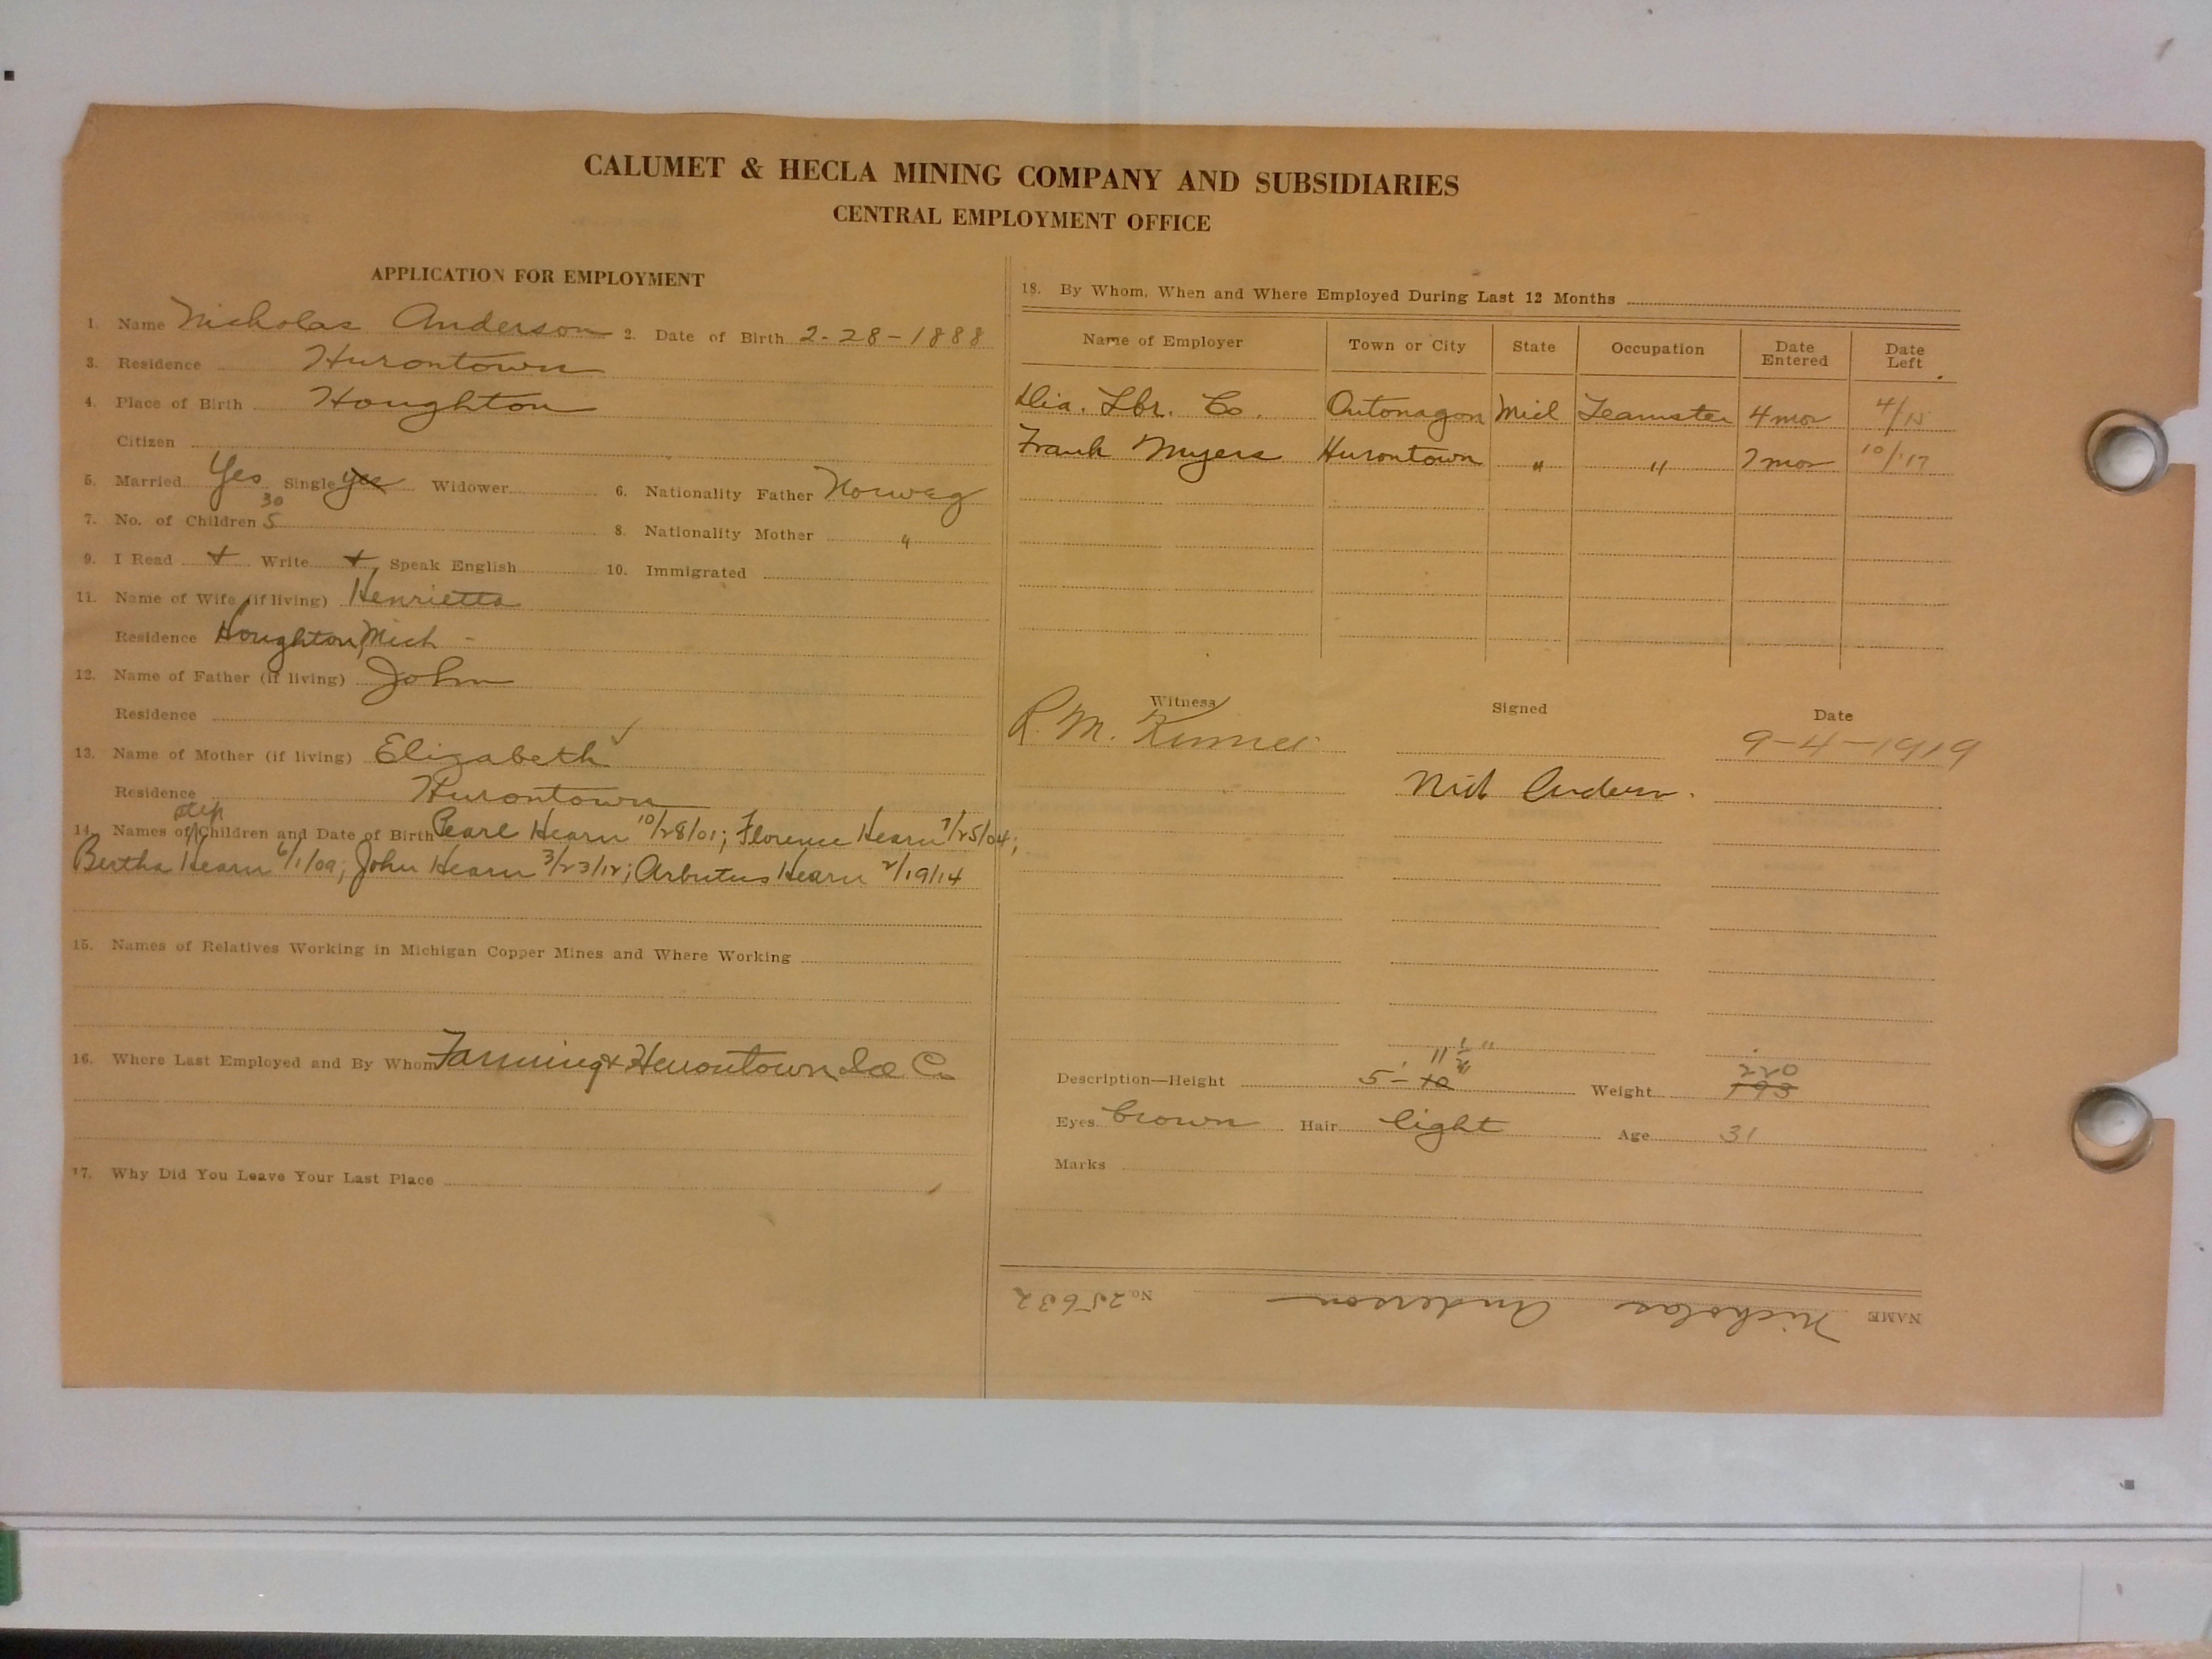 CALUMET & HECLA MINING COMPANY AND SUBSIDIARIES
CENTRAL EMPLOYMENT OFFICE
APPLICATION FOR EMPLOYMENT
1. Name Nicholas Anderson 2. Date of Birth 2-28-1888
3. Residence Hurontown
4. Place of Birth Houghton
Citizen
5. Married Yes Single yes Widower
6. Nationality Father Norweg
30
7. No. of Children 5
8. Nationality Mother "
9. I Read + Write + Speak English
10. Immigrated
11. Name of Wife (if living) Henrietta
Residence Houghton, Mich -
12. Name of Father (if living) John
Residence
13. Name of Mother (if living) Elizabeth ✓
Residence Hurontown
step
14. Names of Children and Date of Birth Pearl Hearn 10/28/01; Florence Hearn 7/25/04;
Bertha Hearn 6/1/09; John Hearn 3/23/12; Arbutus Hearn 2/19/14
15. Names of Relatives Working in Michigan Copper Mines and Where Working
16. Where Last Employed and By Whom Farming & Hurontown Co
17. Why Did You Leave Your Last Place
18. By Whom, When and Where Employed During Last 12 Months
Name of Employer Town or City State Occupation Date Entered Date Left
Dia. Lbr. Co. Ontonagon Mich Teamster 4 mos 4/15
Frank Myers Hurontown " " 7 mos 10/'17
Witness Signed Date
R. M. 9-4-1919
Nick Anderson.
11 1/2 "
220
Description—Height 5'- 10" Weight 193
Eyes brown Hair light Age 31
Marks
NAME Nicholas Anderson No. 25632